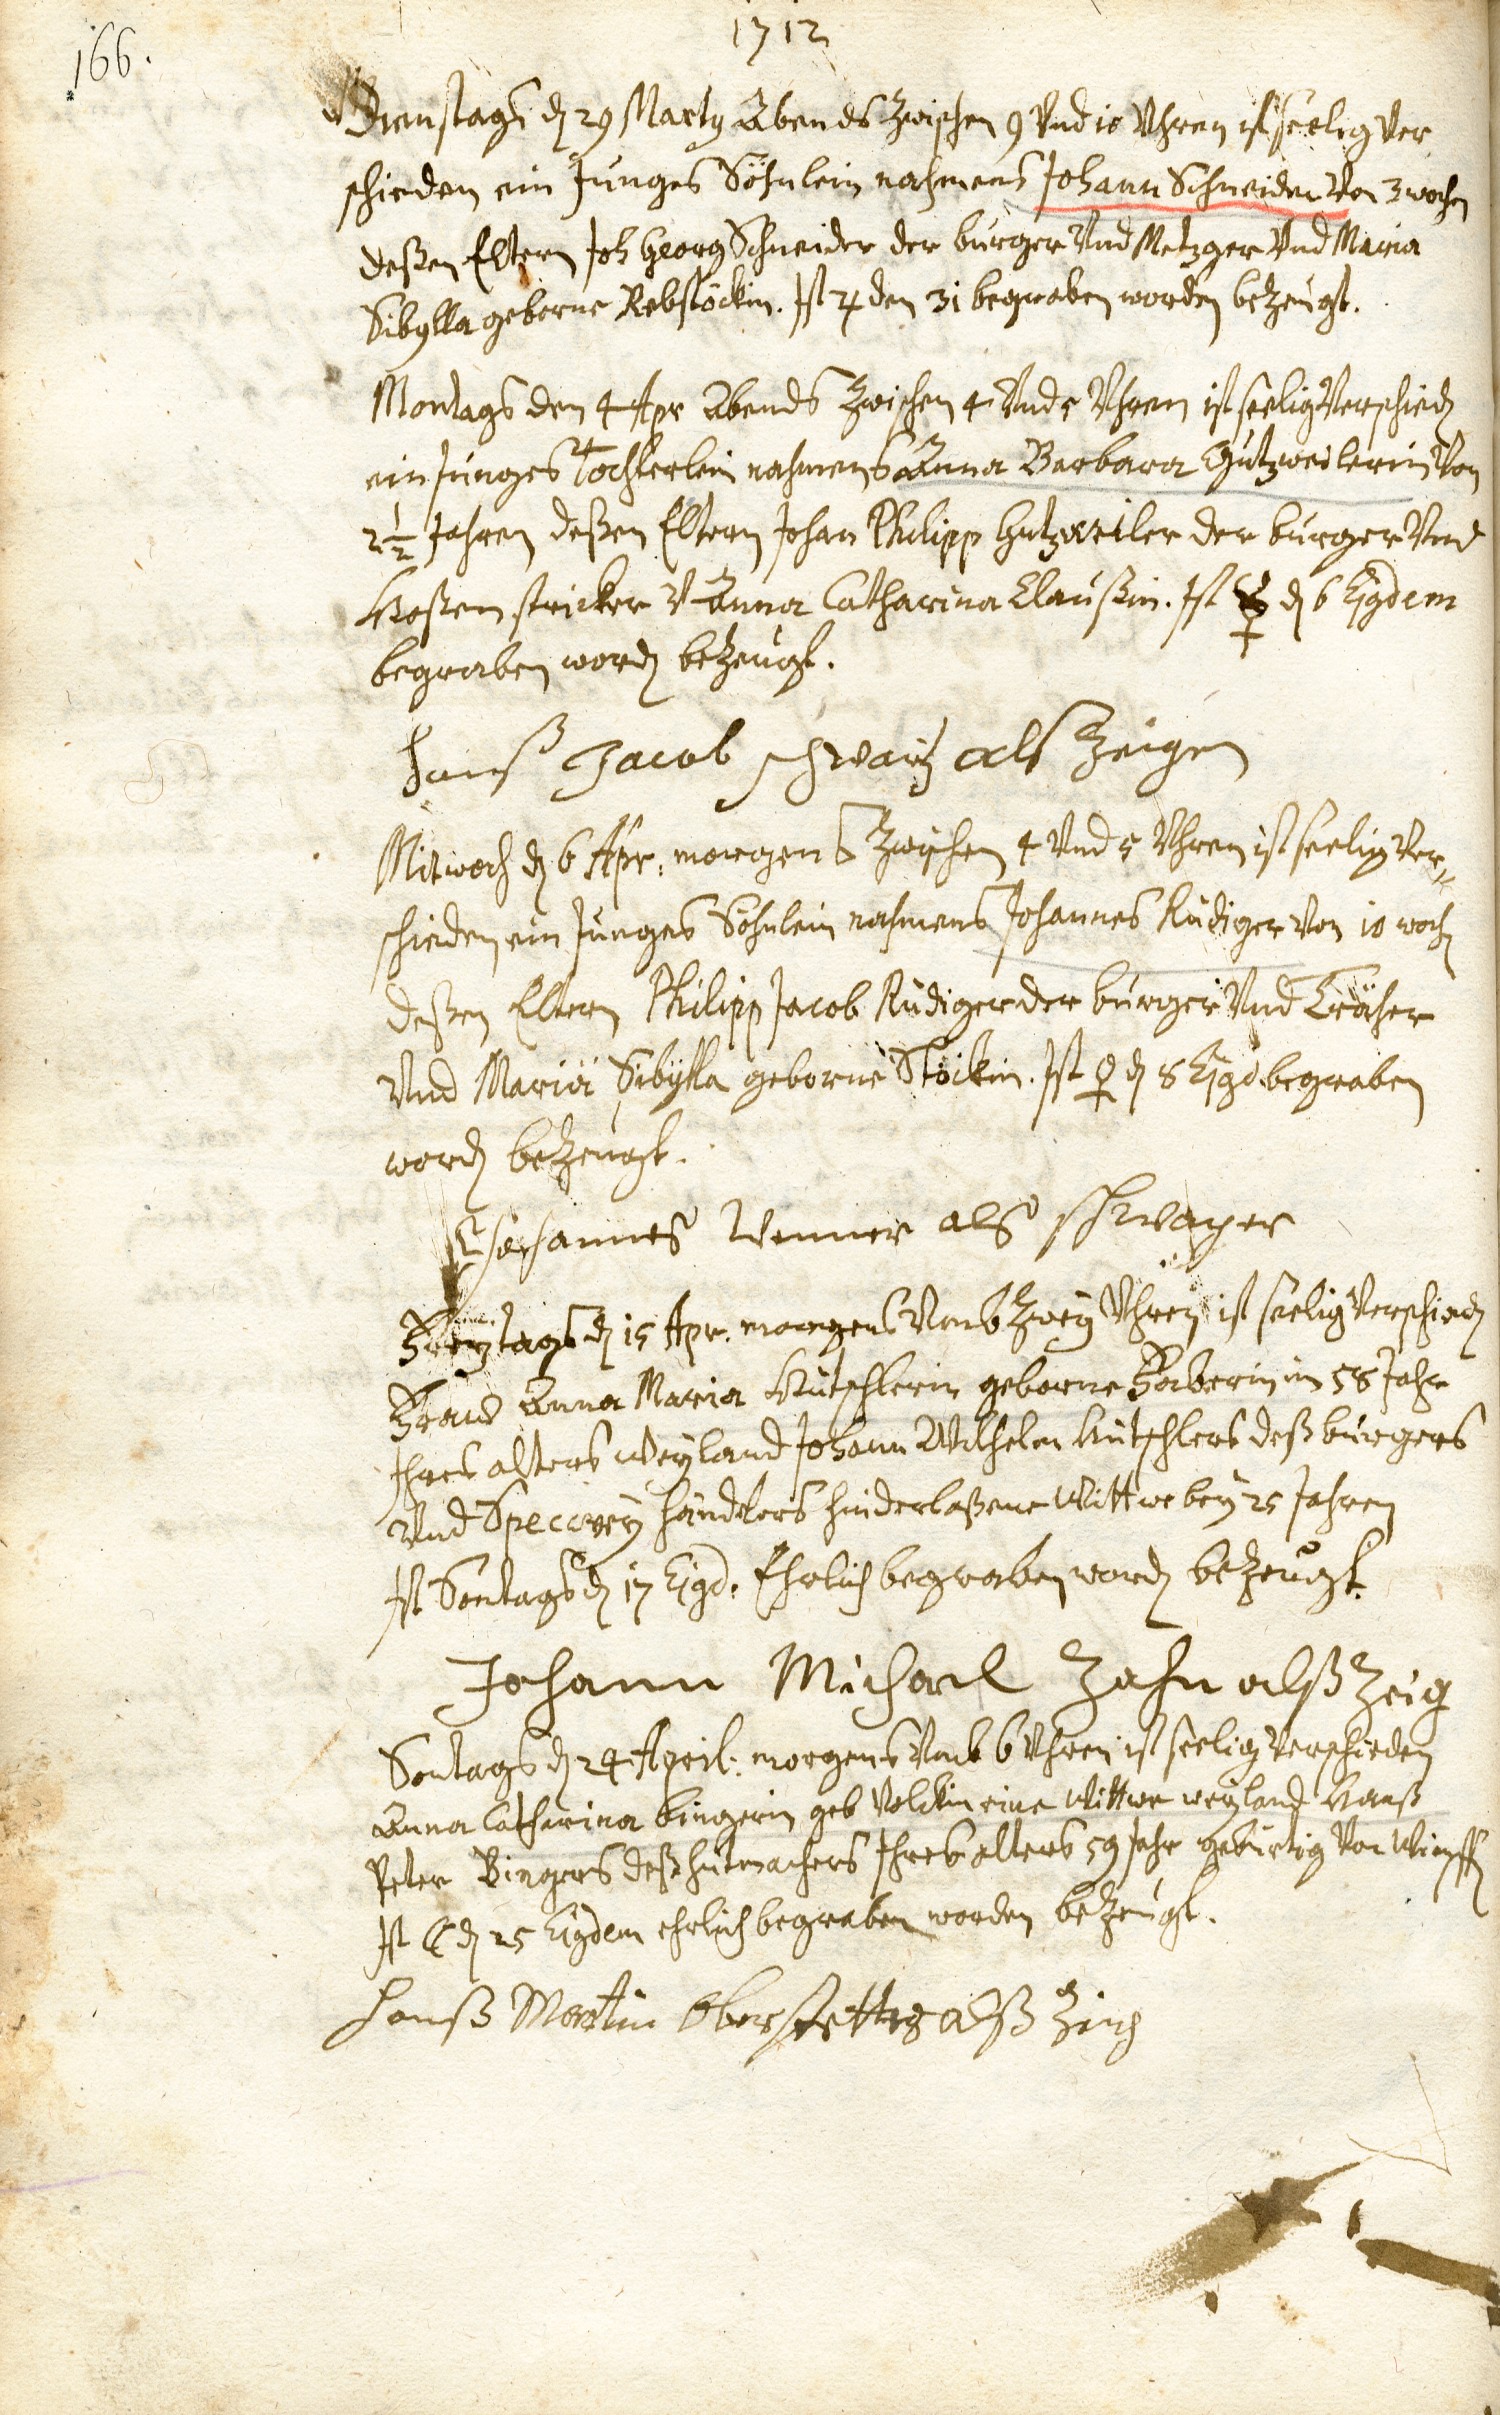 166.
1712
Dienstags d. 29 Marty Abends zwischen 9 Und 10 Uhren ist seelig Ver
schieden ein Junges Söhnlein nahmens Johann Schneider Von 3 wochen
deßen Eltern Joh Georg Schneider der burger Und Metzger Und Maria
Sibylla geborne Rebstöckin. Ist ♃ den 31 begraben worden bezeugt.
Montags den 4 Apr Abends zwischen 4 Und 5 Uhren ist seelig Verschieden
ein Junges Tochterlein nahmens Anna Barbara Gutzweilerin Von
2 1/2 Jahren deßen Eltern Johan Philipp Gutzweiler der burger Und
Hoßen stricker V Anna Catharina Claußin. Ist ☿ d. 6 Ejqdem
begraben worden bezeugt.
Hanß Jacob schwartz als Zeigen
Mitwoch d. 6 Apr: morgens zwischen 4 Und 5 Uhren ist seelig Ver-
schieden ein Junges Söhnlein nahmens Johannes Rüdiger Von 10 wochen
deßen Eltern Philipp Jacob Rüdiger der burger Und
Und Maria Sibylla geborne Stöckin. Ist ♀ d. 8 Ejqd. begraben
worden bezeugt.
Johannes Wenner als schwager
Freytags d. 15 Apr. morgens Umb zwey Uhren ist seelig Verschieden
Fraw Anna Maria geborne Faberin im 58 Jahr
Ihres alters Weyland Johann Wilhelm deß burgers
Und Specerey händlers hinderlaßene Wittwe bey 25 Jahren
Ist Sontags d. 17 Ejqd. Ehrlich begraben worden bezeugt.
Johann Michael Zahn alß Zeig
Sontags d. 24 April. morgens Umb 6 Uhren ist seelig Verschieden
Anna Catharina bingerin geb Volckin eine Wittwe weyland Hanß
Peter Bingers deß hutmachers Ihres alters 59 Jahr gebürtig Von Wimpffen
Ist ☾ d. 25 Ejqdem ehrlich begraben worden bezeugt.
Hanß Martin alß Zeig